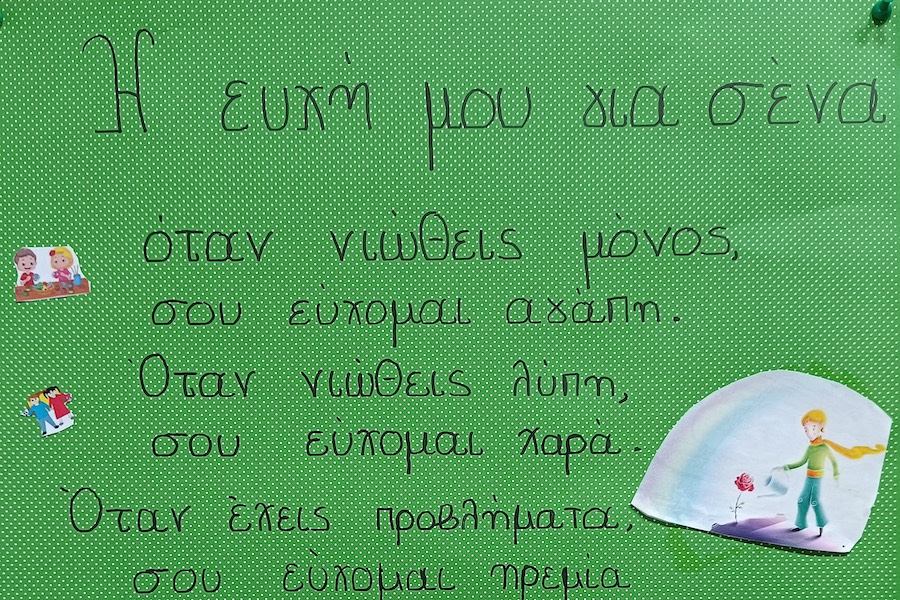 Η ευχή μου για σένα
όταν νιώθεις μόνος,
σου εύχομαι αγάπη.
Όταν νιώθεις λύπη,
σου εύχομαι χαρά.
Όταν έχεις προβλήματα,
σου εύχομαι ηρεμία